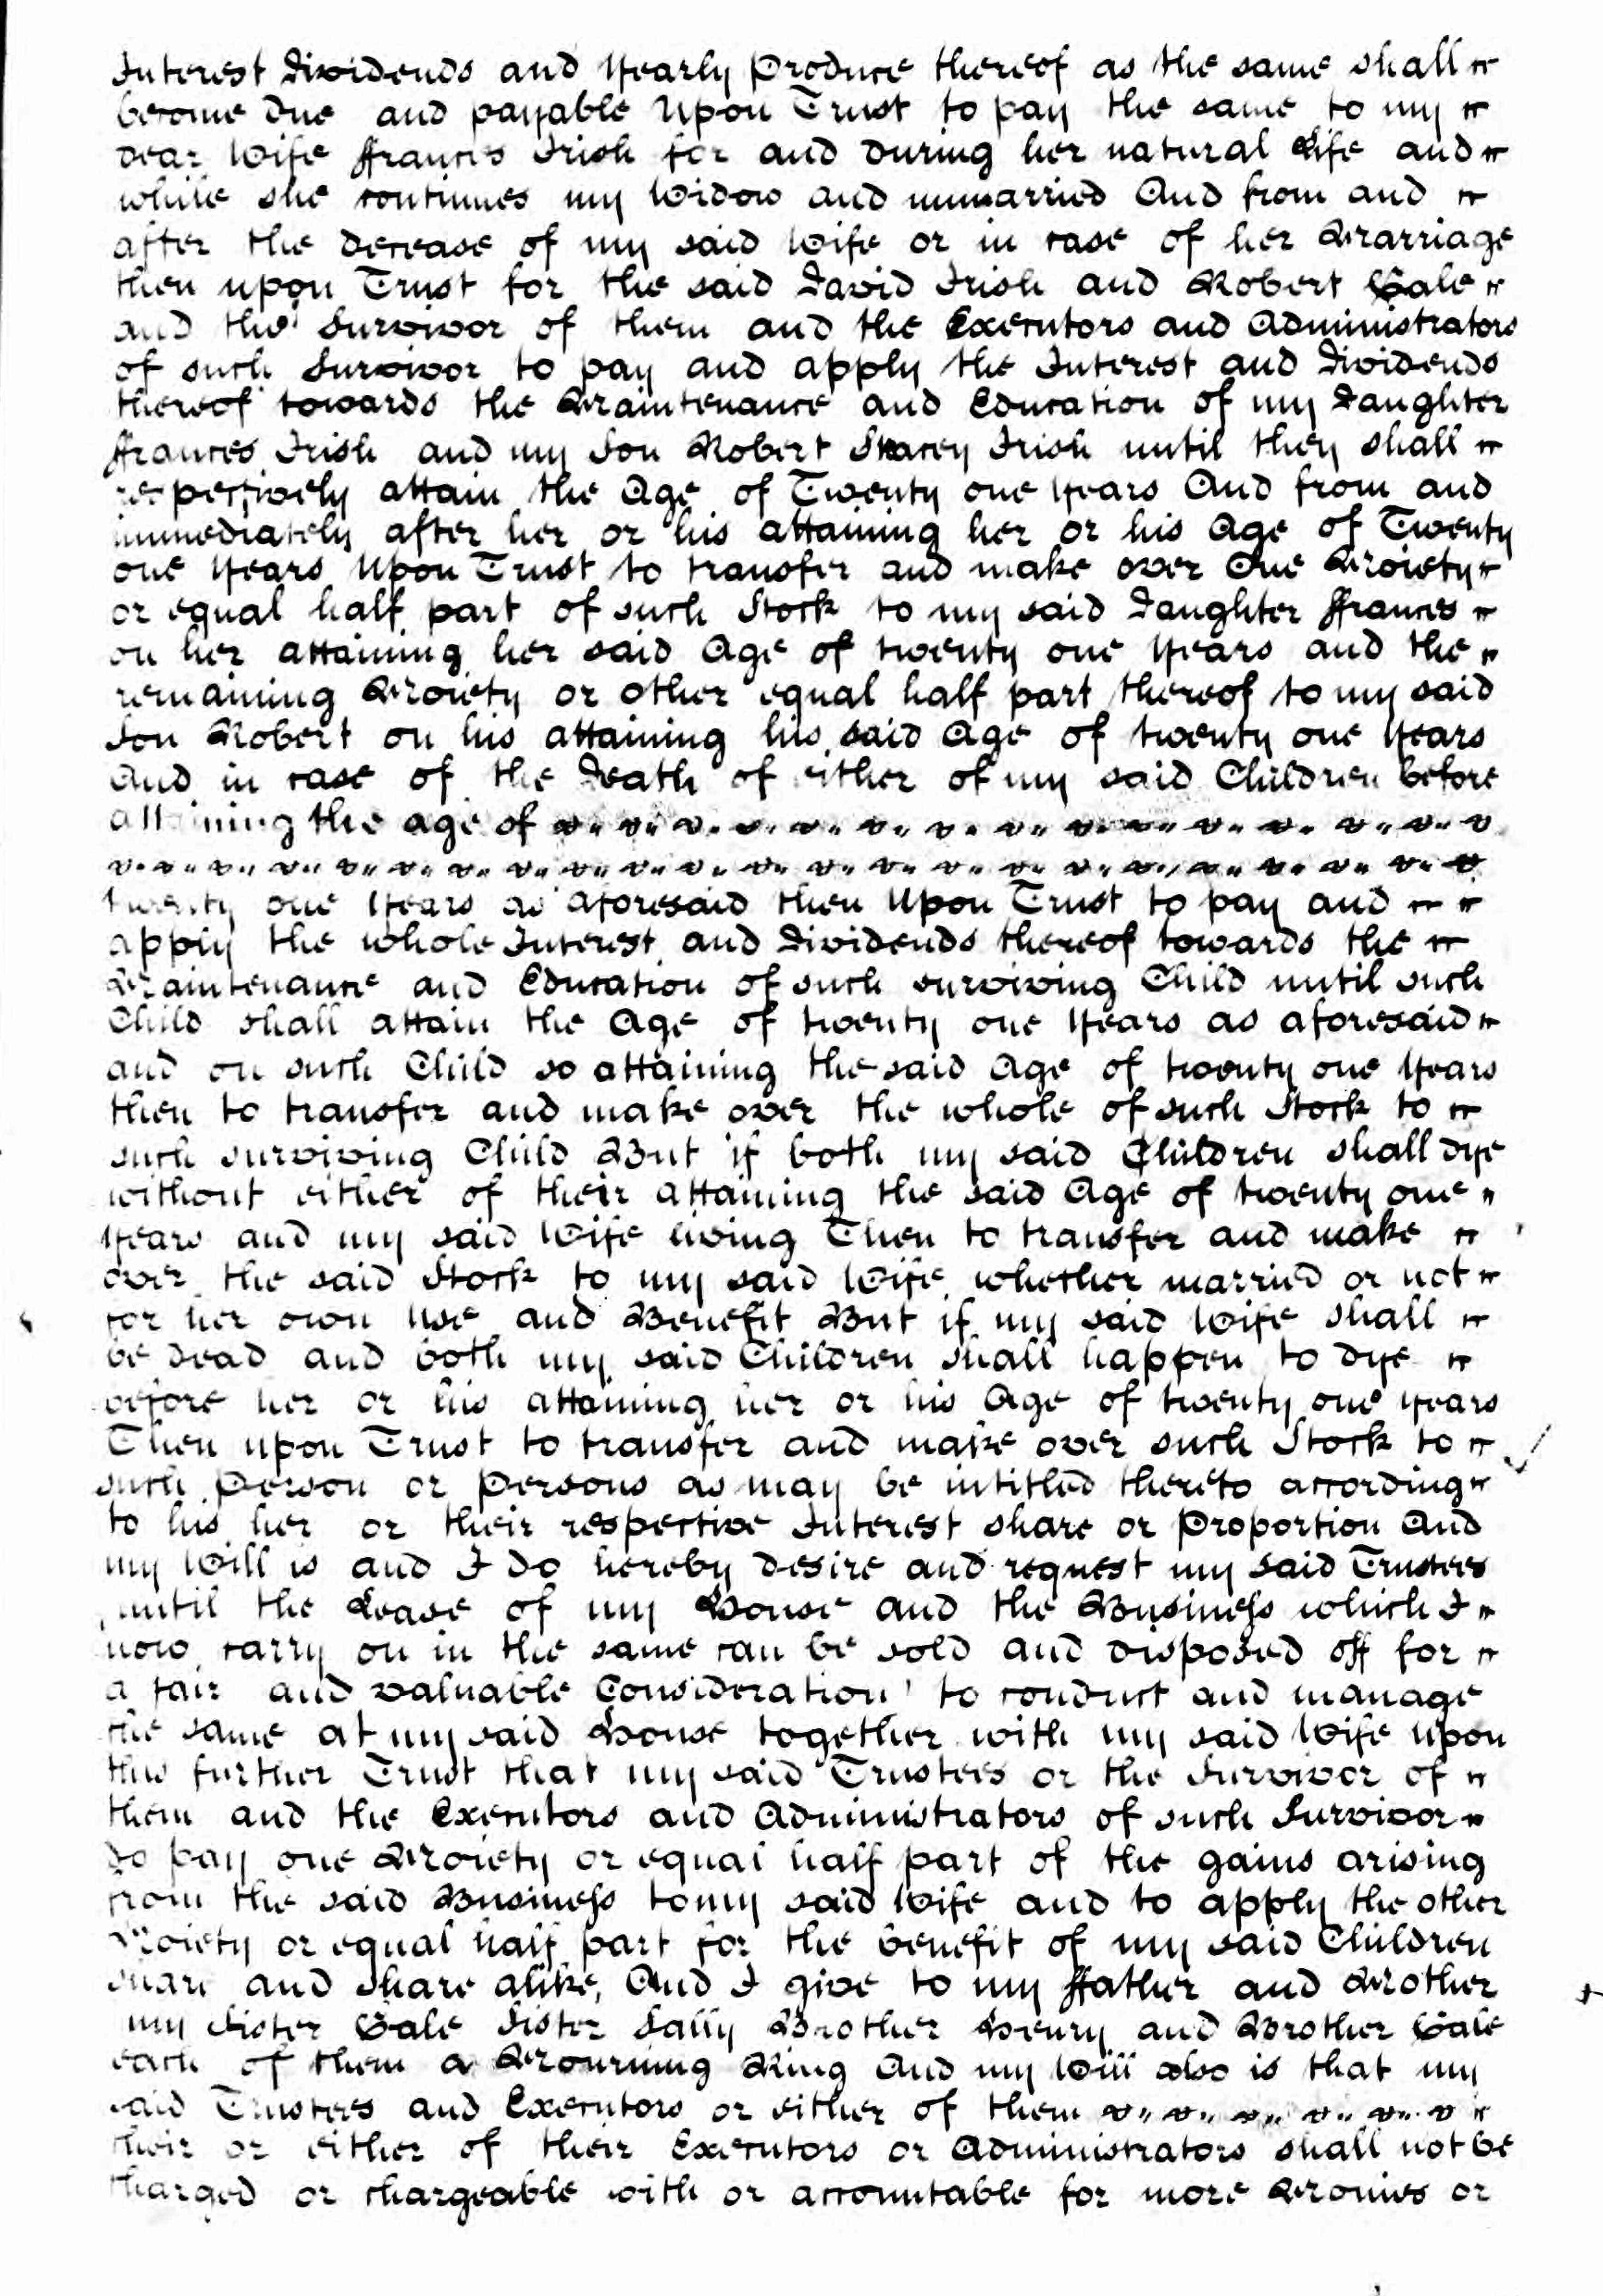 Interest Dividends and Yearly Produce thereof as the same shall
become due and payable Upon Trust to pay the same to my
dear Wife ffrances Irish for and during her natural Life and
while she continues my Widow and unmarried And from and
after the decease of my said Wife or in case of her Marriage
then upon Trust for the said David Irish and Robert Gale
and the Survivor of them and the Executors and Administrators
of such Survivor to pay and apply the Interest and Dividends
thereof towards the Maintenance and Education of my Daughter
ffrances Irish and my Son Robert Stacey Irish until they shall
respectively attain the Age of Twenty one Years And from and
immediately after her or his attaining her or his Age of Twenty
one Years Upon Trust to transfer and make over One Moiety
or equal half part of such Stock to my said Daughter ffrances
on her attaining her said Age of twenty one Years and the
remaining Moiety or other equal half part thereof to my said
Son Robert on his attaining his said Age of twenty one Years
And in case of the Death of either of my said Children before
attaining the age of
twenty one Years as aforesaid then Upon Trust to pay and
apply the whole Interest and Dividends thereof towards the
Maintenance and Education of such surviving Child until such
Child shall attain the Age of twenty one Years as aforesaid
and on such Child so attaining the said Age of twenty one Years
then to transfer and make over the whole of such Stock to
such surviving Child But if both my said Children shall dye
without either of their attaining the said Age of twenty one
Years and my said Wife living Then to transfer and make
over the said Stock to my said Wife whether married or not
for her own Use and Benefit But if my said Wife shall
be dead and both my said Children shall happen to dye
before her or his attaining her or his Age of twenty one years
Then upon Trust to transfer and make over such Stock to
such Person or Persons as may be intitled thereto according
to his her or their respective Interest share or Proportion And
my Will is and I do hereby desire and request my said Trustees
until the Lease of my House and the Business which I
now carry on in the same can be sold and disposed off for
a fair and valuable Consideration to conduct and manage
the same at my said House together with my said Wife upon
this further Trust that my said Trustees or the Survivor of
them and the Executors and Administrators of such Survivor
do pay one Moiety or equal half part of the gains arising
from the said Business to my said Wife and to apply the other
Moiety or equal half part for the benefit of my said Children
share and share alike, And I give to my ffather and Mother
my Sister Gale Sister Sally Brother Henry and Brother Gale
each of them a Mourning Ring And my Will also is that my
said Trustees and Executors or either of them
their or either of their Executors or Administrators shall not be
charged or chargeable with or accountable for more Monies or